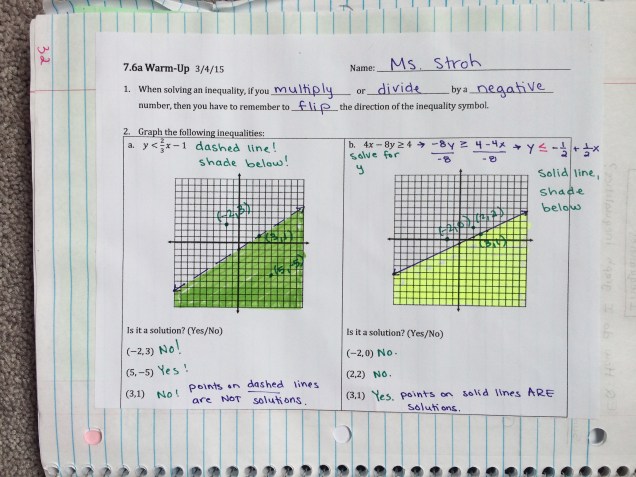 32
7.6a Warm-Up 3/4/15 Name: Ms. Stroh
1. When solving an inequality, if you multiply or divide by a negative
number, then you have to remember to flip the direction of the inequality symbol.
2. Graph the following inequalities:
a. y < 2/3 x − 1 dashed line!
shade below!
b. 4x − 8y ≥ 4 → -8y/-8 ≥ 4-4x/-8 → y ≤ -1/2 + 1/2x
solve for
y
Solid line,
shade
below
(-2,3)
(3,1)
(5,-5)
(-2,0) (2,2)
(3,1)
Is it a solution? (Yes/No)
(−2, 3) No!
(5, −5) Yes!
(3,1) No! points on dashed lines
are NOT solutions.
Is it a solution? (Yes/No)
(−2, 0) No.
(2,2) No.
(3,1) Yes, points on solid lines ARE
solutions.